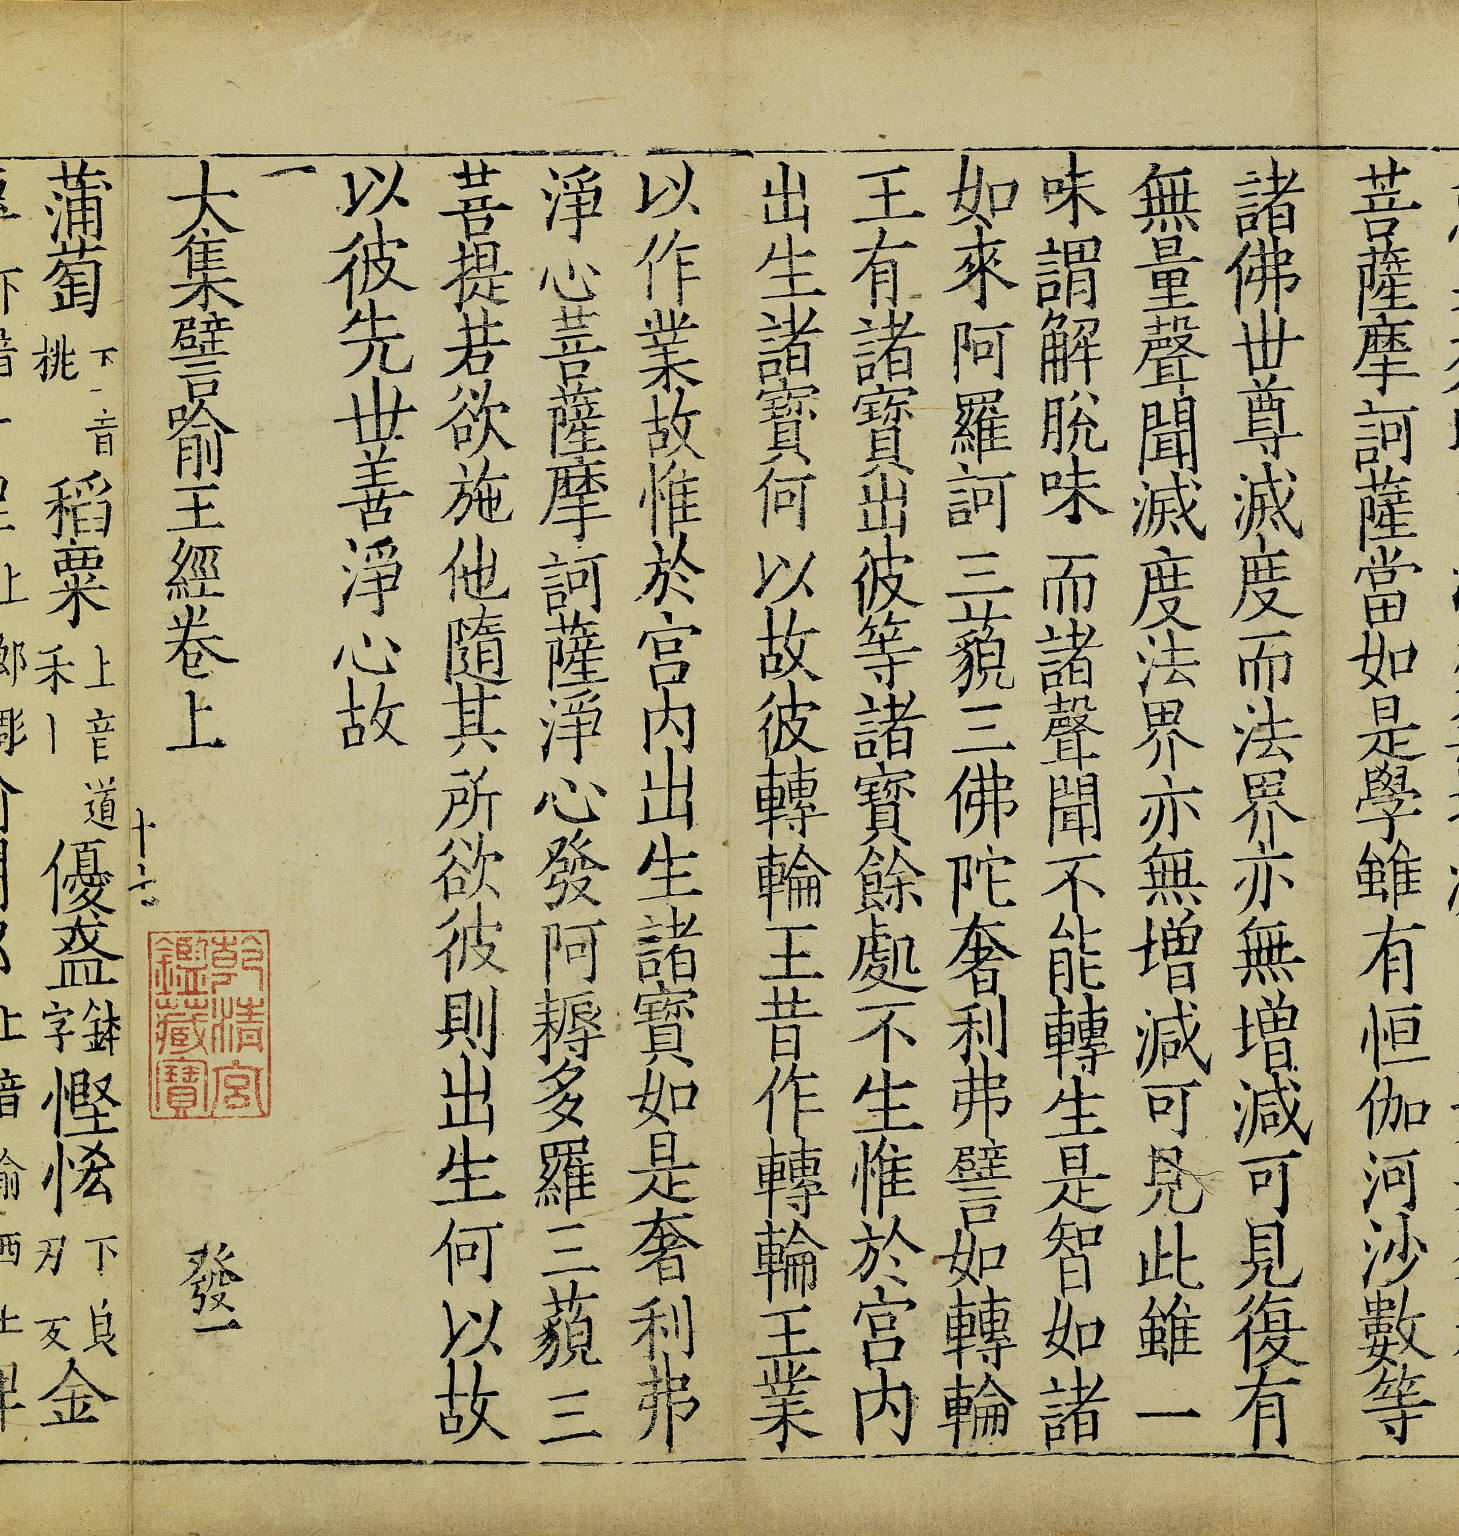 菩薩摩訶薩當如是學雖有恒伽河沙數等
諸佛世尊滅度而法界亦無增減可見復有
無量聲聞滅度法界亦無增減可見此雖一
味謂解脫味而諸聲聞不能轉生是智如諸
如來阿羅訶三藐三佛陀奢利弗譬如轉輪
王有諸寶出彼等諸寶餘處不生惟於宮內
出生諸寶何以故彼轉輪王昔作轉輪王業
以作業故惟於宮內出生諸寶如是奢利弗
淨心菩薩摩訶薩淨心發阿耨多羅三藐三
菩提若欲施他隨其所欲彼則出生何以故
以彼先世善淨心故
一
大集譬喻王經卷上
發一
乾清宮鑑藏寶
蒲萄下音桃稻粟上音道禾丨優盋鉢字慳悋下良刃反金